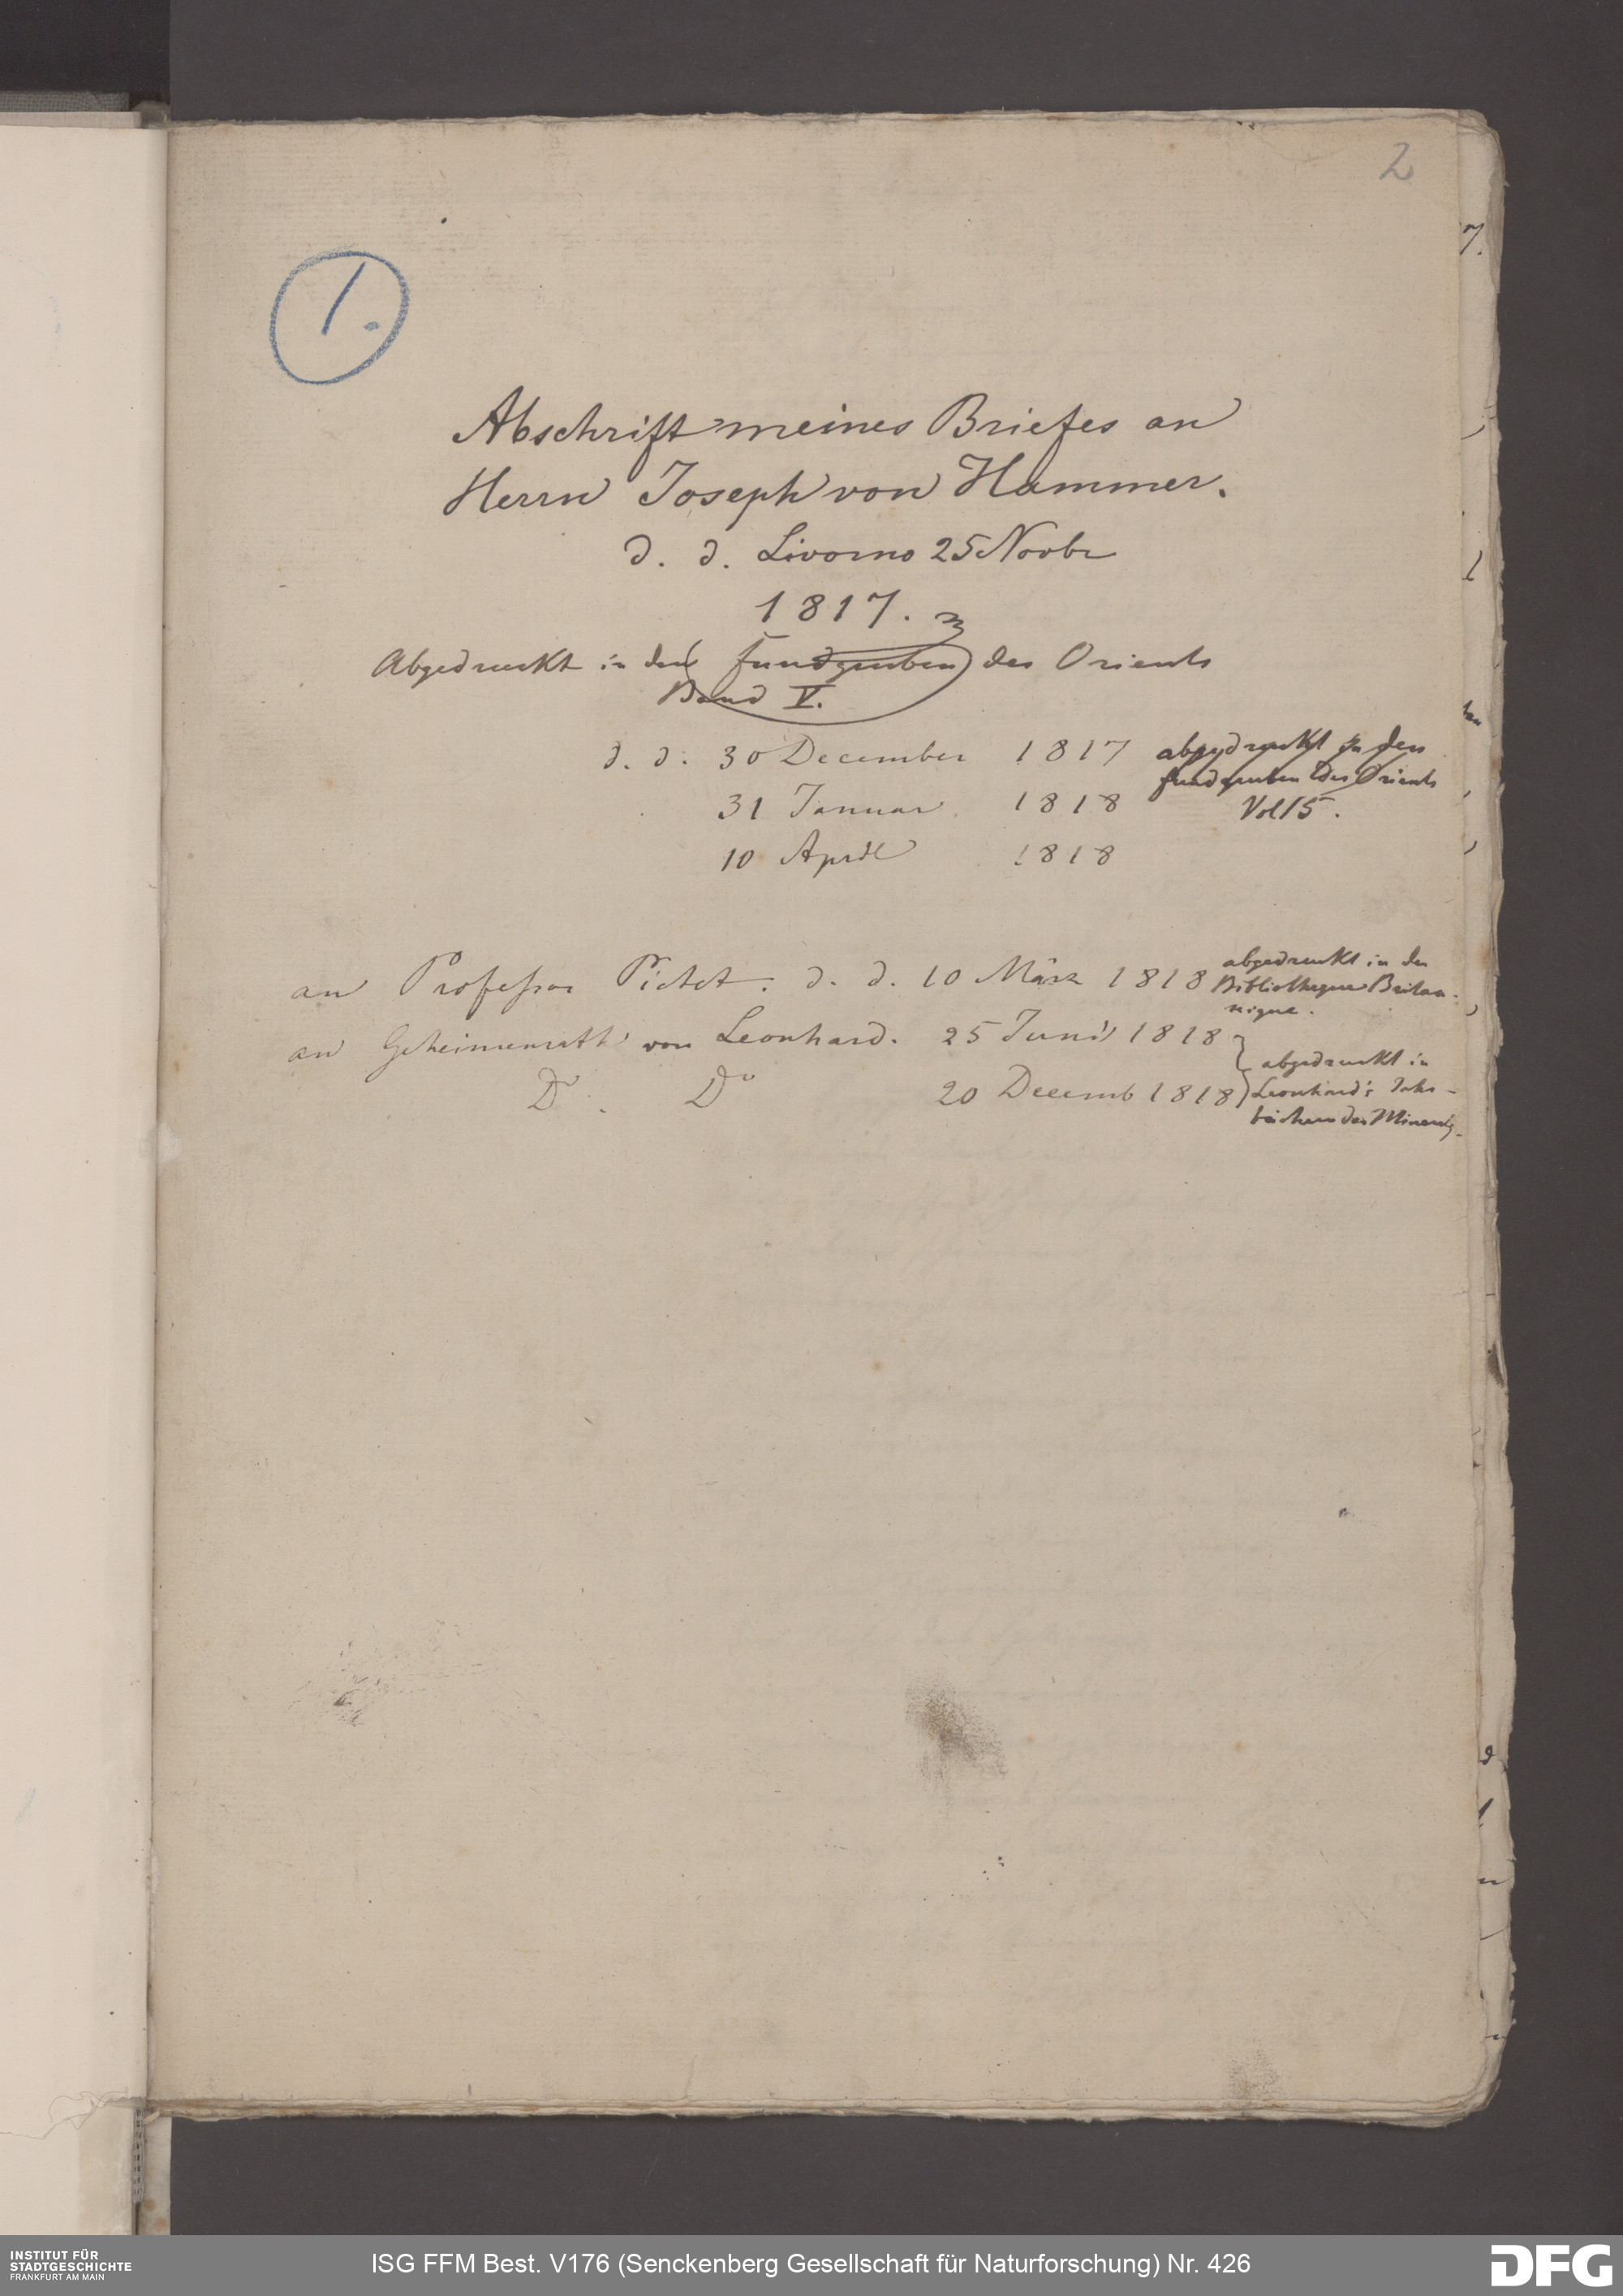 2
1.
Abschrift meines Briefes an
Herrn Joseph von Hammer.
d. d. Livorno 25 Novbr
1817.
Abgedruckt in den fundgruben des Orients
Band V.
d. d. 30 December 1817 abgedruckt in den
fundgruben des Orients
31 Januar 1818 Vol 5.
10 April 1818
an Professor Pictet. d. d. 10 März 1818 abgedruckt in der
Bibliotheque Britan-
nique.
an Geheimerath von Leonhard. 25 Juni 1818
abgedruckt in
Do. Do 20 Decemb 1818 Leonhard's Jahr-
büchern der Mineralg.
INSTITUT FÜR
STADTGESCHICHTE
FRANKFURT AM MAIN
ISG FFM Best. V176 (Senckenberg Gesellschaft für Naturforschung) Nr. 426
DFG